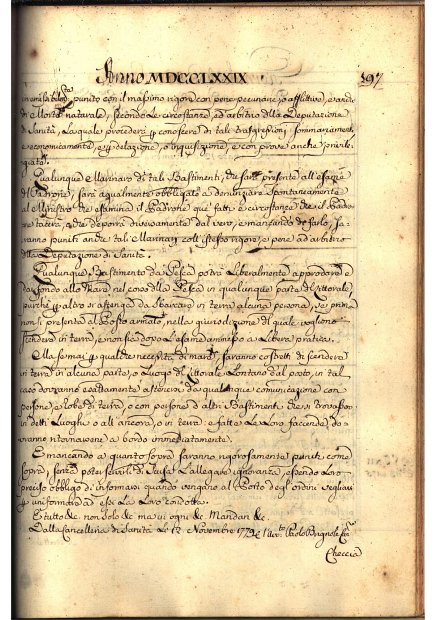 Anno MDCCLXXIX
397
punito con il massimo rigore con pene pecuniarie, o afflittive, ed anche
di Morte naturale, secondo le circostanze, ed arbitrio della Deputazione
di Sanità, la quale procederà a conoscere di tali trasgressioni sommariamente,
e economicamente, delazione, o inquisizione, e con prove anche
Qualunque Marinaro di tali Bastimenti, che sarà presente all'esame
del Padrone, sarà egualmente obbligato a denunziare spontaneamente
al Ministro che esamina il Padrone que' fatti e circostanze che il Padrone
tacerà, o che deporrà diversamente dal vero, e mancando di farlo,
saranno puniti anche tali Marinari coll'istesso rigore, e pene ad arbitrio
della Deputazione di Sanità.
Qualunque Bastimento da Pesca potrà liberalmente approdare e
dar fondo alle Mare nel corso della Pesca in qualunque parte del Littorale,
purchè altro si astenga da sbarcare in terra alcuna persona, se prima
non si presenta al Posto armato, nella giurisdizione del quale vogliono
scendere in terra, e non sia dopo l'esame ammesso a libera pratica.
Ma se mai per qualche necessità di mare saranno costretti di scendere
in terra in alcuna parte, o Luogo del Littorale lontano dal posto, in tal
caso dovranno esattamente astenersi da qualunque comunicazione con
persone, e robe di terra, o con persone d'altri Bastimenti che si trovassero
in detti Luoghi o all'ancora, o in terra: e fatte le loro faccende
dovranno ritornarsene a bordo immediatamente.
E mancando a quanto sopra saranno rigorosamente puniti come
sopra, senza poter servirli di scusa l'allegare ignoranza, essendo loro
preciso obbligo di informarsi quando vengano al Porto degl'ordini veglianti
per uniformarvi ad essi la loro condotta.
E tutto &c. non solo &c. ma in ogni &c. Mandan &c.
Dalla Cancelleria di Sanità li 12 Novembre 1779
Checcia